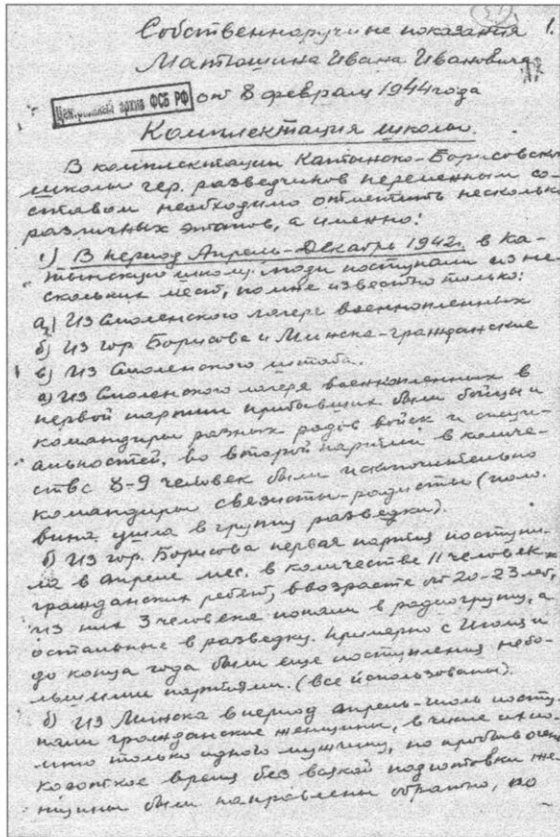 1.
Собственноручные показания
Матюшина Ивана Ивановича
Центральный архив ФСБ РФ
от 8 февраля 1944 года
Комплектация школы.
В комплектации Катынско-Борисовской
школы гер. разведчиков переменным со-
ставом необходимо отметить несколько
различных этапов, а именно:
1) В период Апрель-Декабрь 1942г. в Ка-
тынскую школу люди поступали из не-
скольких мест, но мне известно только:
а) Из Смоленского лагеря военнопленных
б) Из гор. Борисова и Минска-гражданские
в) Из Смоленского штаба.
а) Из Смоленского лагеря военнопленных в
первой партии прибывших были бойцы и
командиры разных родов войск и специ-
альностей, во второй партии в количе-
стве 8-9 человек были исключительно
командиры связисты-радисты (поло-
вина ушла в группу разведки).
б) Из гор. Борисова первая партия поступи-
ла в апреле мес. в количестве 11 человек
гражданских ребят, в возрасте от 20-23 лет,
из них 3 человека попали в радиогруппу, а
остальные в разведку. Примерно с Июля и
до конца года были еще поступления небо-
льшими партиями. (все использованы).
б) Из Минска в период апрель-июль посту-
пали гражданские женщины, в числе их
только одного мужчину, но пробыв очень
короткое время без всякой подготовки же-
нщины были направлены обратно, по